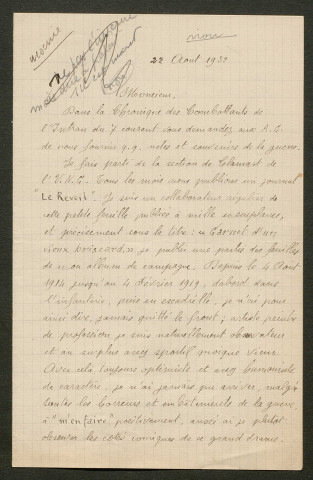 22 Août 1932
Monsieur,
Dans la Chronique des Combattants de
l'Intran du 7 courant vous demandez aux A.C.
de vous fournir q.q. notes et souvenirs de la guerre.
Je fais partie de la section de Clamart de
l'U.N.C. Tous les mois nous publions un journal
"Le Réveil". Je suis un collaborateur régulier de
cette petite feuille publiée à mille exemplaires,
et précisément sous le titre : « Carnet d'un
vieux briscard » je publie une partie des feuilles
de mon album de campagne. Depuis le 4 Août
1914 jusqu'au 4 février 1919, d'abord dans
l'infanterie, puis en escadrille, je n'ai pour
ainsi dire, jamais quitté le front ; artiste peintre
de profession je suis naturellement observateur
et au surplus assez sportif quoique vieux.
Avec cela, toujours optimiste et assez humoriste
de caractère, je n'ai jamais pu arriver, malgré
toutes les horreurs et embêtements de la guerre
à "m'en faire" positivement, aussi ai je plutôt
observé les cotés comiques de ce grand drame.